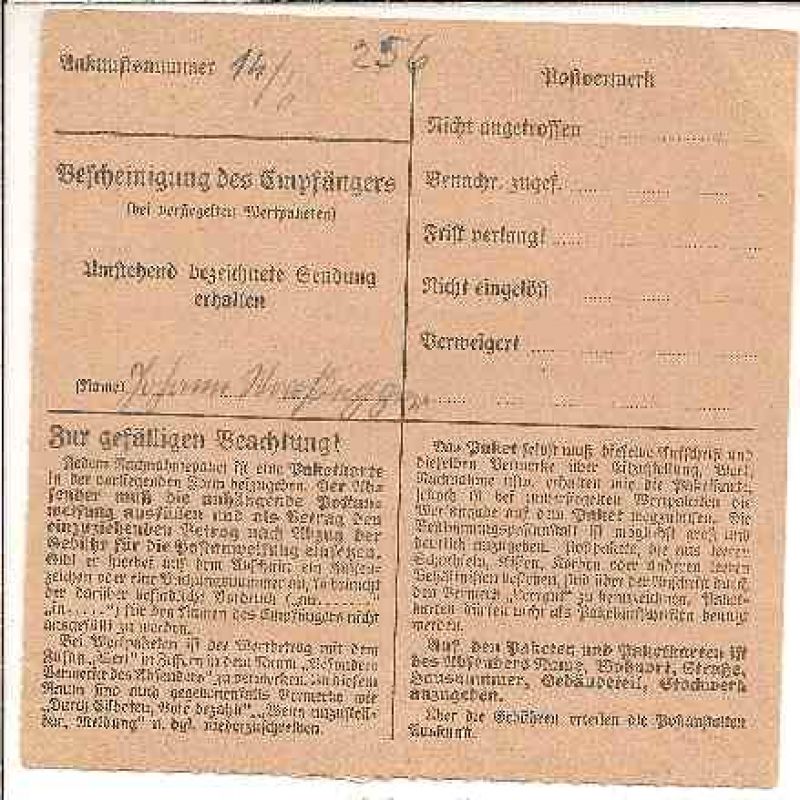 Ankunftsnummer 14/ 256
Bescheinigung des Empfängers
(bei versiegelten Wertpaketen)
Umstehend bezeichnete Sendung
erhalten
(Name) Johann
Postvermerk
Nicht angetroffen
Benachr. zugef.
Frist verlangt
Nicht eingelöst
Verweigert
Zur gefälligen Beachtung!
Jedem Nachnahmepaket ist eine Paketkarte
in der vorliegenden Form beizugeben. Der Ab-
sender muß die anhängende Postan-
weisung ausfüllen und als Betrag den
einzuziehenden Betrag nach Abzug der
Gebühr für die Postanweisung einsetzen.
Gibt er hierbei auf dem Abschnitt ein
zeichen oder eine nummer an, so braucht
der darüber befindliche Vordruck („
„in ......“) für den Namen des Empfängers nicht
ausgefüllt zu werden.
Bei Wertpaketen ist der Wertbetrag mit dem
Zusatz „Wert“ in Ziffern in dem Raum „Besondere
Vermerke des Absenders“ zu vermerken. In diesem
Raum sind auch gegebenenfalls Vermerke wie
„Durch Eilboten, Bote bezahlt“, „Wenn unzustell-
bar, Meldung“ u. dgl. niederzuschreiben.
Das Paket selbst muß dieselbe Aufschrift und
dieselben Vermerke über Eilzustellung, Wert,
Nachnahme usw. erhalten wie die Paketkarte,
jedoch ist bei unversiegelten Wertpaketen die
Wertangabe auf dem Paket wegzulassen. Die
Bestimmungspostanstalt ist möglichst groß und
deutlich anzugeben. die aus leeren
Schachteln, Kisten, Körben oder anderen leeren
Behältnissen bestehen, sind über der Aufschrift durch
den Vermerk „Leergut“ zu kennzeichnen. Paket-
karten dürfen nicht als Paketaufschriften benutzt
werden.
Auf den Paketen und Paketkarten ist
des Absenders Name, Wohnort, Straße,
Hausnummer, Gebäudeteil, Stockwerk
anzugeben.
Über die Gebühren erteilen die Postanstalten
Auskunft.